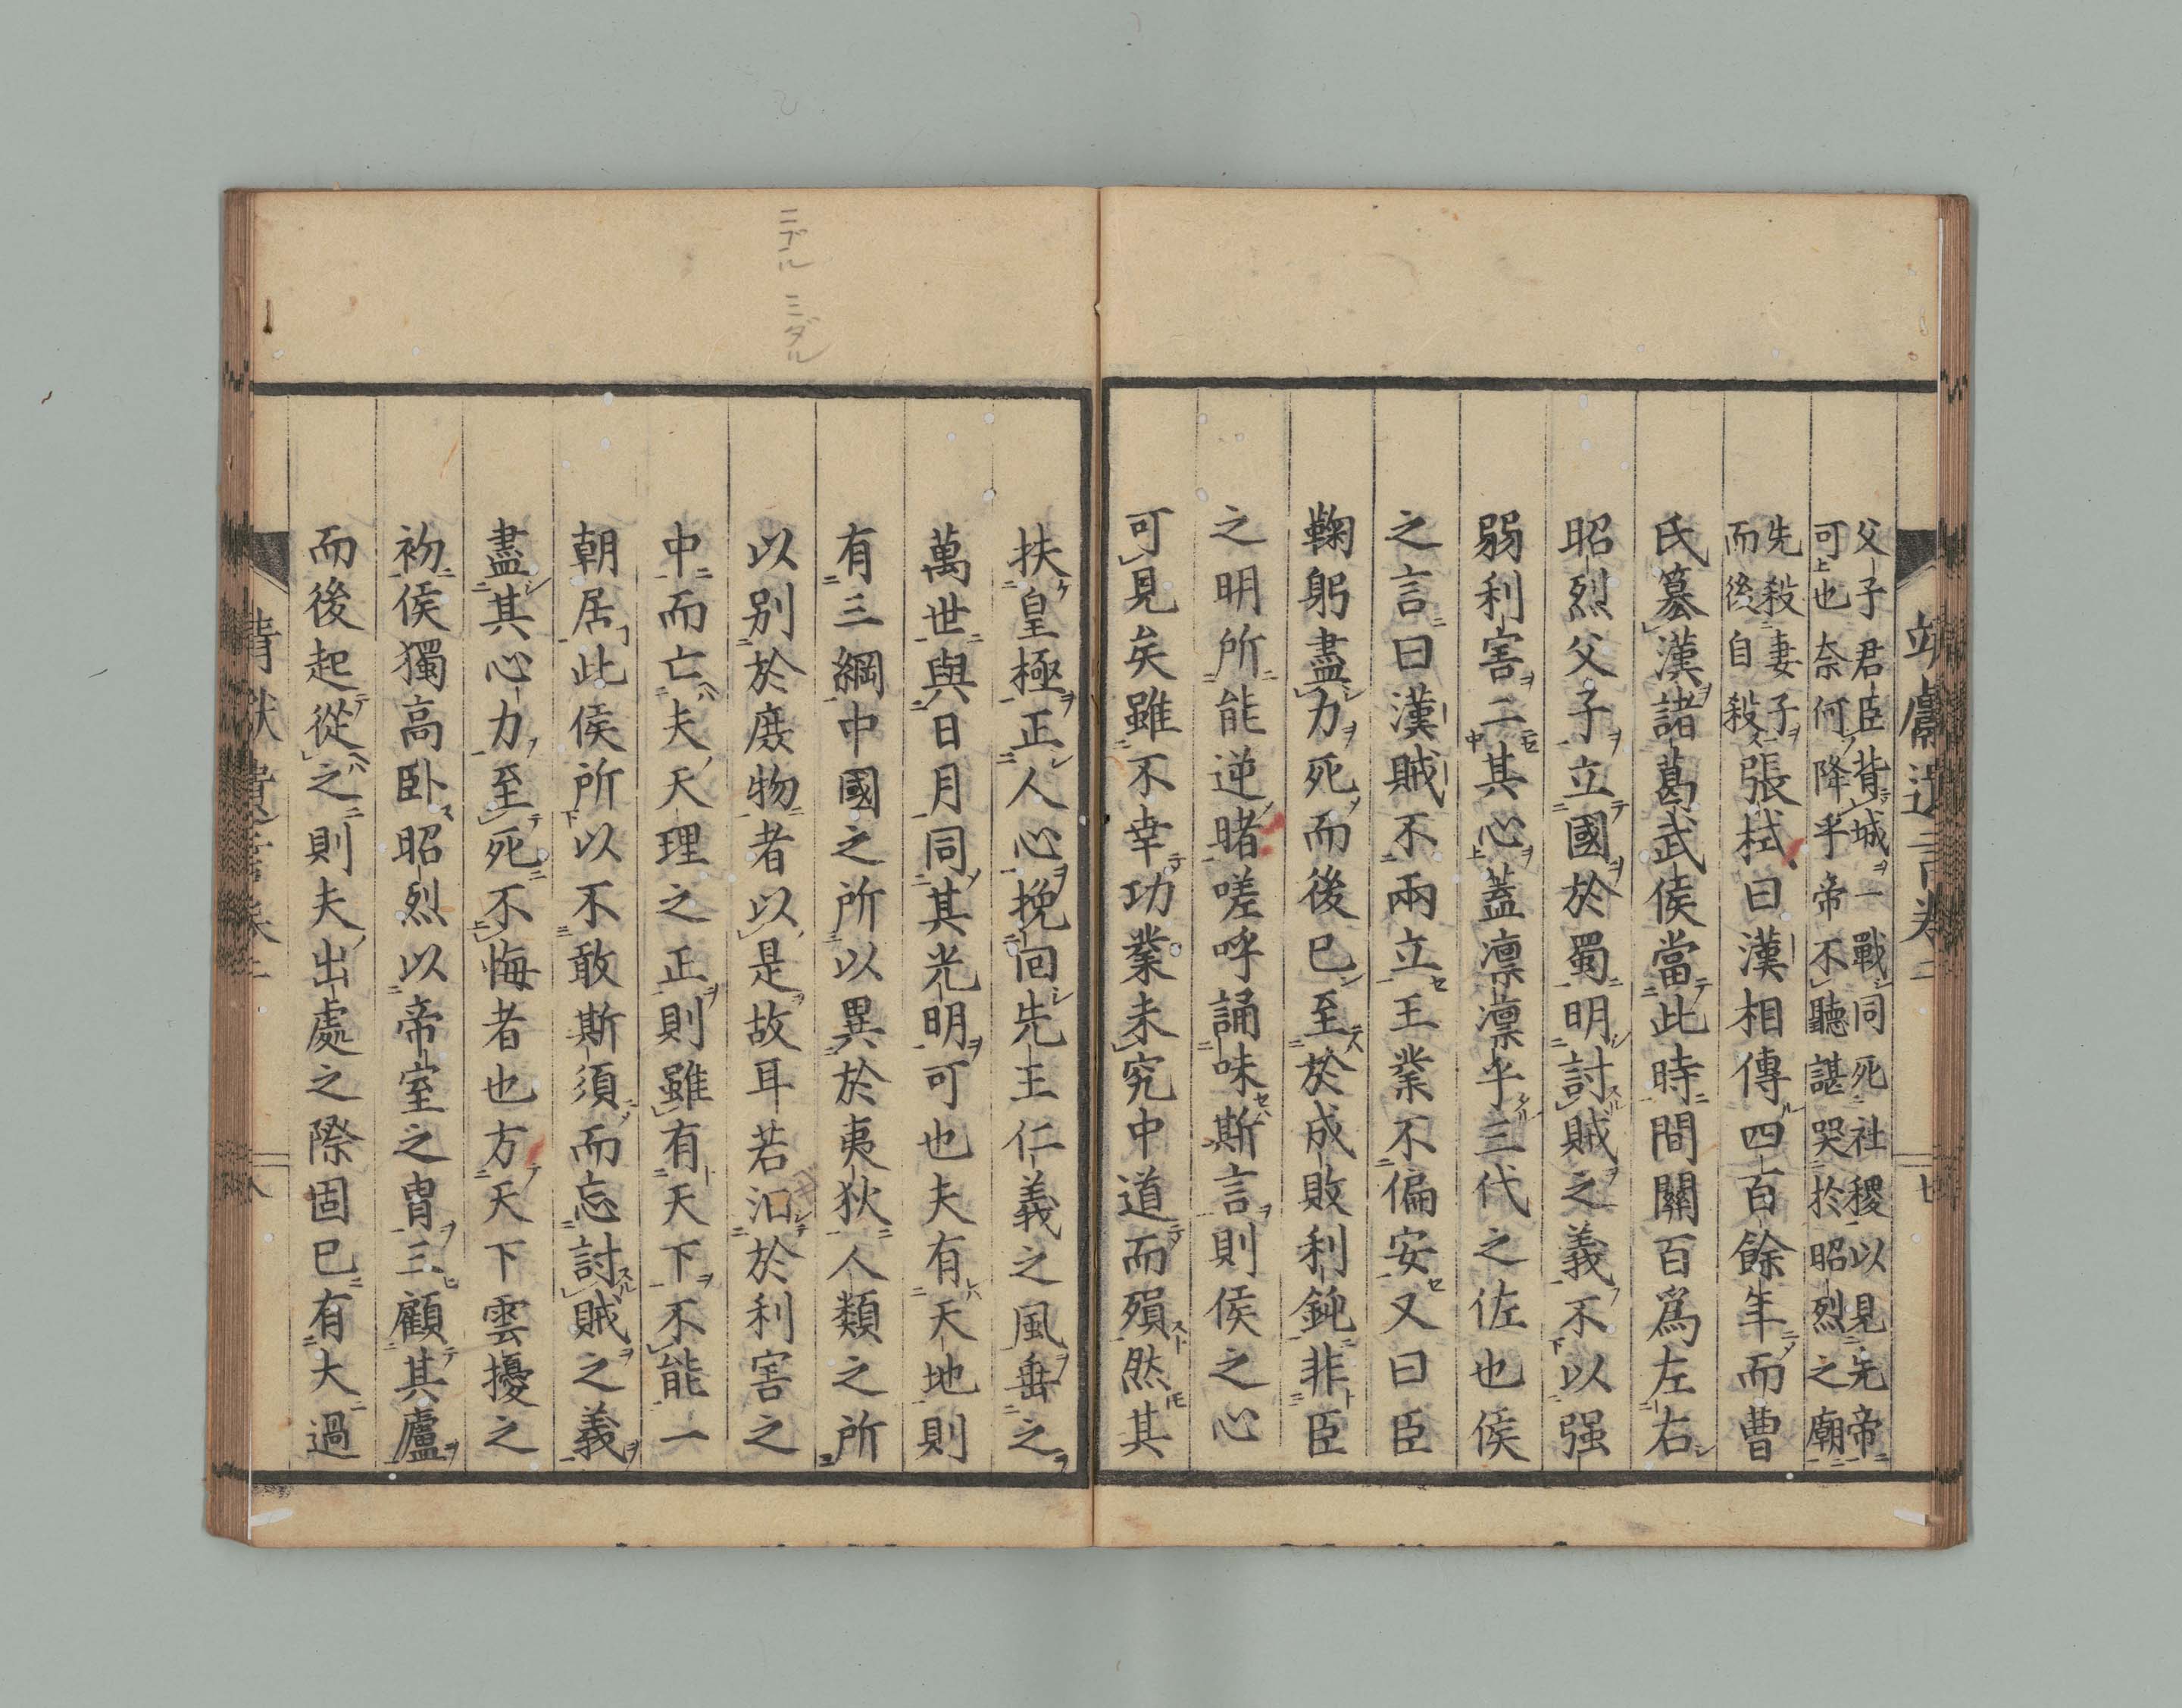 靖獻遺言卷二
七
父子君臣背城一戰同死社稷以見先帝
可也奈何降乎帝不聽諶哭於昭烈之廟
先殺妻子
而後自殺
張栻曰漢相傳四百餘年而曹
氏篡漢諸葛武侯當此時間關百爲左右
昭烈父子立國於蜀明討賊之義不以强
弱利害二其心蓋凛凛乎三代之佐也侯
之言曰漢賊不兩立王業不偏安又曰臣
鞠躬盡力死而後已至於成敗利鈍非臣
之明所能逆睹嗟呼誦味斯言則侯之心
可見矣雖不幸功業未究中道而殞然其
扶皇極正人心挽回先王仁義之風垂之
萬世與日月同其光明可也夫有天地則
有三綱中國之所以異於夷狄人類之所
以別於庶物者以是故耳若汨於利害之
中而亡夫天理之正則雖有天下不能一
朝居此侯所以不敢斯須而忘討賊之義
盡其心力至死不悔者也方天下雲擾之
初侯獨高臥昭烈以帝室之胄三顧其廬
而後起從之則夫出處之際固已有大過
ニゴル ミダル